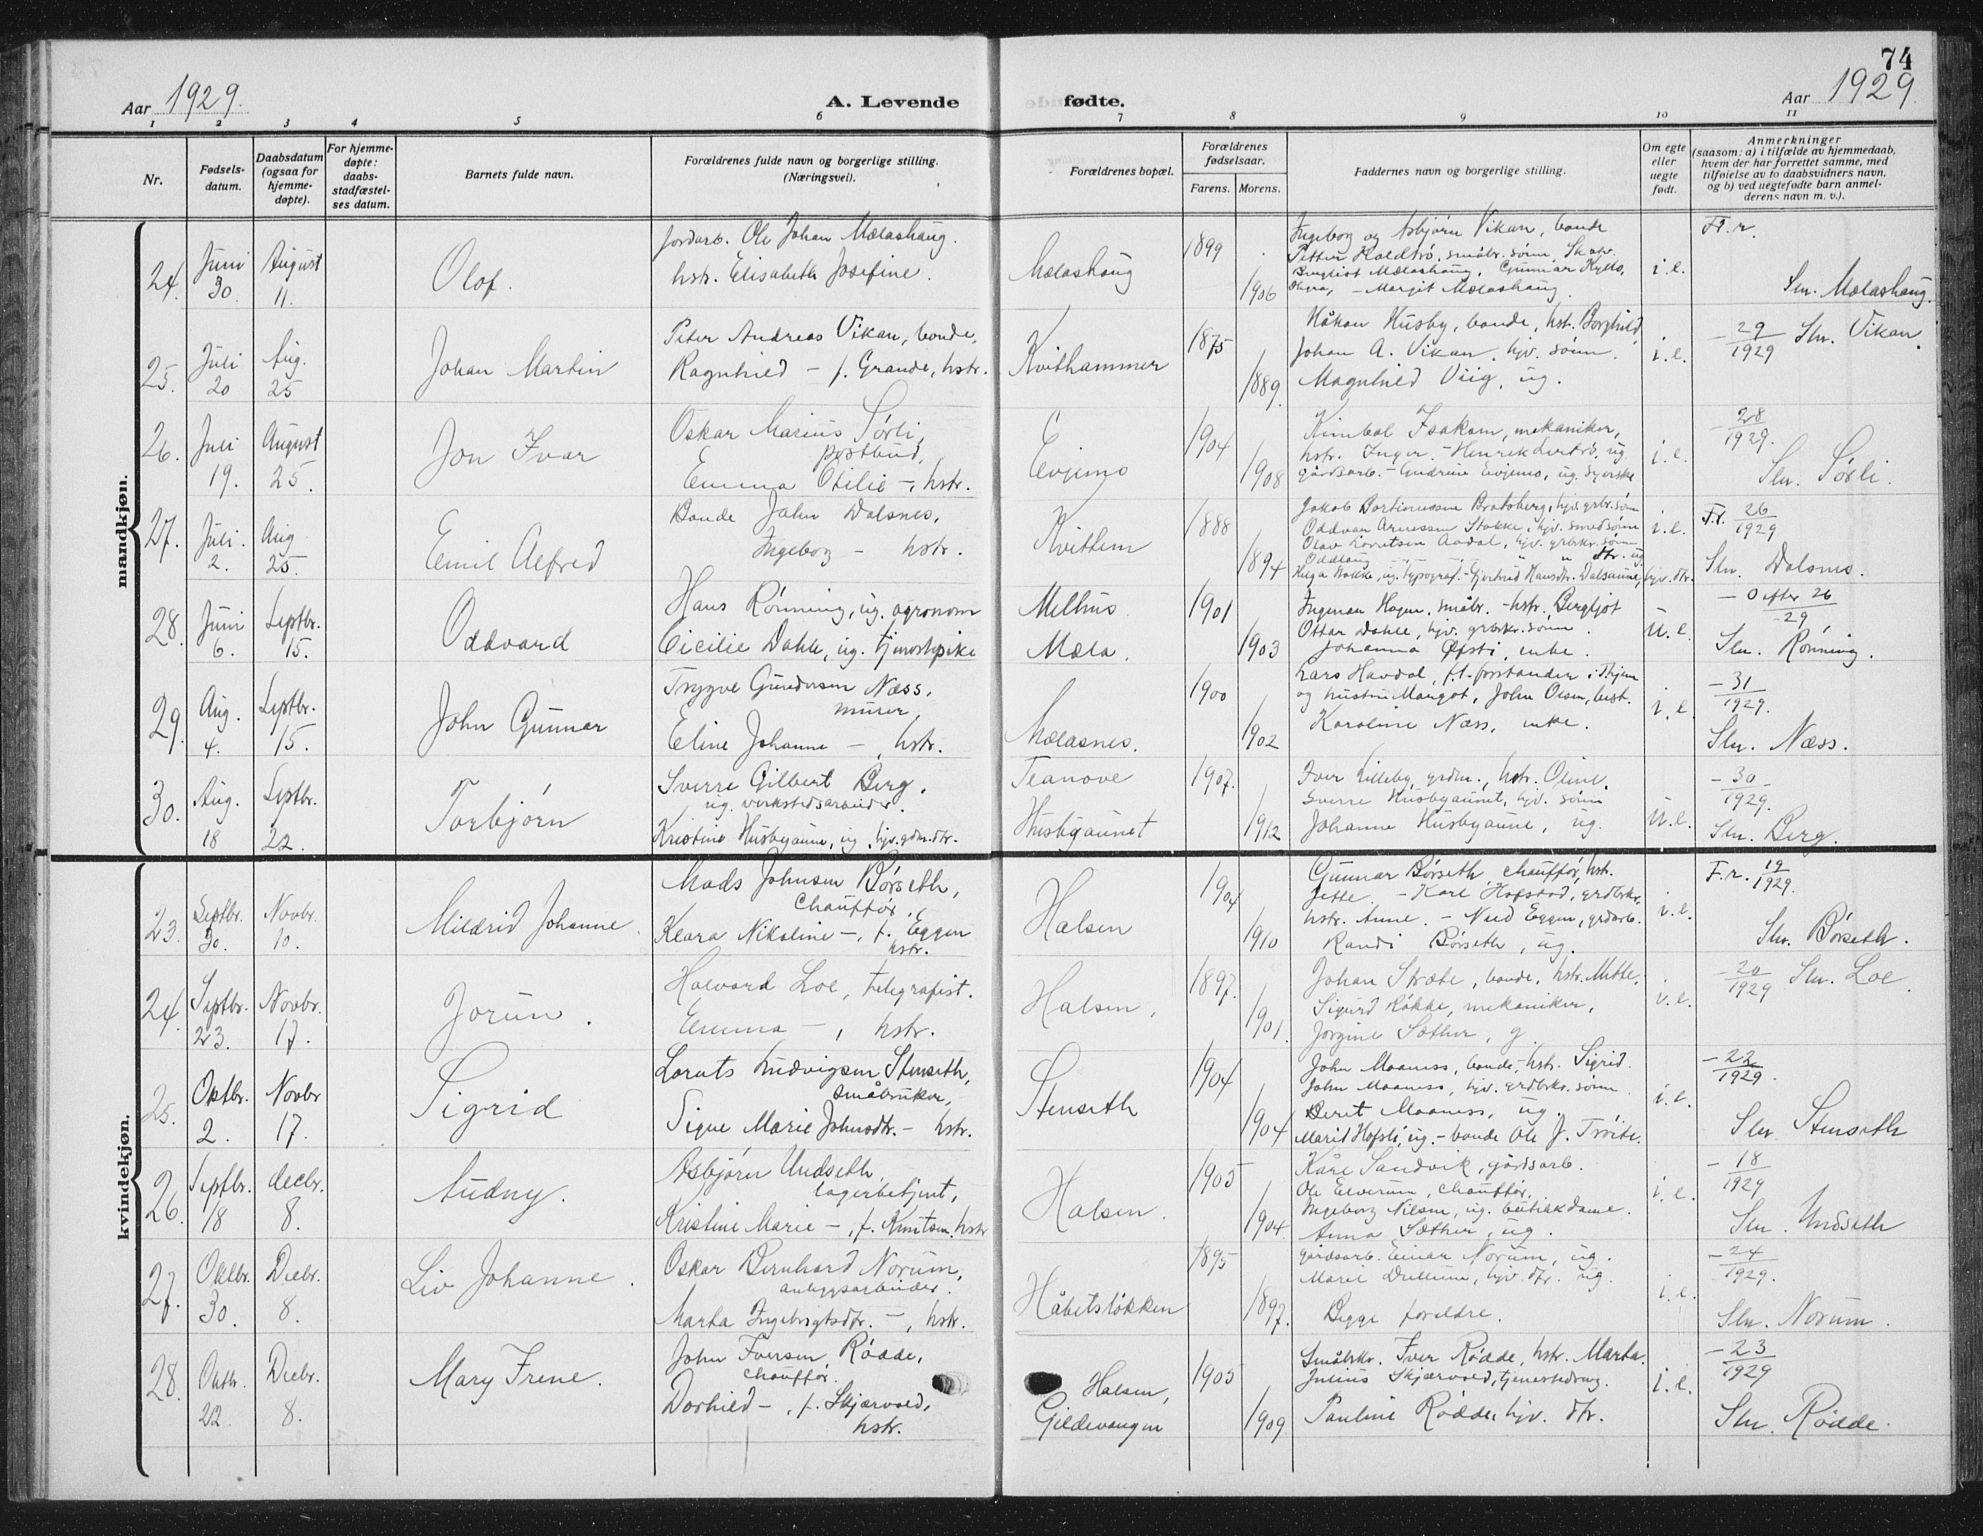 74
Aar 1929.
A. Levende
fødte.
Aar 1929
1 2 3 4 5 6 7 8 9 10 11
Nr.
Fødsels-
datum.
Daabsdatum
(ogsaa for
hjemme-
døpte).
For hjemme-
døpte:
daabs-
stadfæstel-
ses datum.
Barnets fulde navn.
Forældrenes fulde navn og borgerlige stilling.
(Næringsvei).
Forældrenes bopæl.
Forældrenes
fødselsaar.
Farens. Morens.
Faddernes navn og borgerlige stilling.
Om egte
eller
uegte
født.
Anmerkninger
(saasom: a) i tilfælde av hjemmedaab,
hvem der har forrettet samme, med
tilføielse av to daabsvidners navn,
og b) ved uegtefødte barn anmel-
derens navn m. v.).
mandkjøn.
24. Juni 30. August 11.
Olof.
Jordarb. Ole Johan Mælashaug.
hstr. Elisabeth Josefine.
Mælashaug
1899 1906
Ingeborg og Asbjørn Vikan, bonde
Petter Haldtrø, småbr. sønn,
Bergliot Mælashaug, Gunnar
Margit Mælashaug.
i.e.
F.r.
Sln. Mælashaug.
25. Juli 20 Aug. 25
Johan Martin
Peter Andreas Vikan, bonde,
Ragnhild – f. Grande, hstr.
Kvithammer
1875 1889.
Håkon Husby, bonde, hst. Borghild,
Johan A. Vikan, hjv. sønn.
Magnhild Viig, ug.
i.e.
– 29/1929 Sln. Vikan.
26. Juli 19. August 25.
Jon Ivar
Oskar Marius Sørli,
postbud,
Emma Otilie –, hstr.
Evjemo
1904 1908
Kimbal Isaksen, mekaniker,
hstr. Inger. – Henrik ug.
gårdsarb. – Gudrun Evjemo, ug. syerske
i.e.
– 28/1929.
Sln. Sørli.
27. Juli. 2. Aug 25.
Emil Alfred
Bonde John Dalsnes,
Ingeborg – hstr.
Kvitlem
1888 1894
Jakob Bortinussen Bratsberg, hjv. grbr. søn
Oddvar Arnessen Stokke, hjv. smedsønn
Olav Lorntsen Aadal, hjv. grbrkr. sønn
Oddlaug – – " " dtr. ug.
Helga Stokke, ug. typograf. – Gjertrud Hansdtr. Dalsaune, hjv. dtr.
i.e.
F.r. 26/1929
Sln. Dalsnes.
28. Juni 6. Septbr. 15.
Oddvard
Hans Rønning, ug. agronom
Cicilie Dahle, ug. tjenestpike
Melhus
Mæla.
1901 1903
Ingemar Hagen, småbr. – hstr. Bergljot
Ottar Dahle, hjv. grbrkr. sønn.
Johanna Øfsti, enke.
u.e.
– O efter 26/29
Sln. Rønning.
29. Aug. 4. Septbr. 15.
John Gunnar
Trygve Gundersen Næss,
murer,
Eline Johanne –, hstr.
Mælasnes.
1900 1902
Lars Havdal, f.t. forstander i
og hustru Margot, John Olsen, best.
Karoline Næss, enke.
i.e.
– 31/1929.
Sln. Næss.
30. Aug. 18 Septbr. 22.
Torbjørn
Sverre Gilbert Berg,
ug. verkstedsarbeider.
Kristine Husbyaune, ug, hjv. gdm. dtr.
Teanove
Husbyaunet
1907. 1912
Iver Lilleby, grdm., hstr. Oline,
Sverre Husbyaunet, hjv. sønn
Johanne Husbyaune, ug.
u.e.
– 30/1929.
Sln. Berg.
kvindekjøn.
23. Septbr. 30. Novbr. 10.
Mildrid Johanne.
Mads Johnsen Børseth,
Chauffør,
Klara Nikoline –, f. Eggen
hstr.
Halsen
1904 1910
Gunnar Børseth chauffør, hstr.
Jette, – Karl Hofstad, grdbrkr,
hstr. Anne. – Nud Eggen, grdarb.
Randi Børseth, ug.
i.e.
F.r. 19/1929.
Slr. Børseth.
24. Septbr. 23. Novbr. 17.
Jorun.
Halvard Loe, telegrafist.
Emma –, hstr.
Halsen,
1897. 1901.
Johan Stræte, bonde, hstr. Mette,
Sigurd Høkke, mekaniker,
Jorgine Sæther, g.
i.e.
– 20/1929 Slm. Loe
25. Oktbr. 2. Novbr 17.
Sigrid
Lornts Ludvigsen Stenseth,
Småbruker,
Signe Marie Johnsdtr. – hstr.
Stenseth
1904 1904
John Maaness, bonde, – hstr. Sigrid.
John Maaness, hjv. grdbrkr. sønn
Beret Maaness, ug.
Marit Hofsli, ug. – bonde Ole J. Trøite.
i.e.
– 22/1929.
Slm. Stenseth
26. Septbr. 18 decbr. 8.
Audny.
Asbjørn Undseth,
lagerbetjent,
Kristine Marie –, f. Knutsen. hstr
Halsen.
1905 1904
Kåre Sandvik, gårdsarb.
Ole Elverum, chauffør,
Ingeborg Nilsen, ug. butikkdame.
Anna Sæther, ug.
i.e.
– 18/1929
Slm. Undseth
27. Oktbr. 30. Decbr. 8.
Liv Johanne.
Oskar Bernhard Norum,
anleggsarbeider.
Marta Ingebrigtsdtr. –, hstr.
Håbetsløkken
1895 1897.
gårdsarb. Einar Norum, ug.
Marie Dullum, hjv. dtr. ug.
Begge foreldre.
i.e.
– 24/1929.
Slm. Norum.
28. Oktbr. 22. Decbr. 8.
Mary Irene.
John Iversen Rødde,
Chauffør.
Dorhild –, f. Skjærvold,
hstr.
Halsen,
Gildevangen
1905 1909
Småbkr. Iver Rødde, hstr. Marta.
Julius Skjærvold, tjenestedreng.
Pauline Rødde, hjv. dtr.
i.e.
– 23/1929
Slm. Rødde.